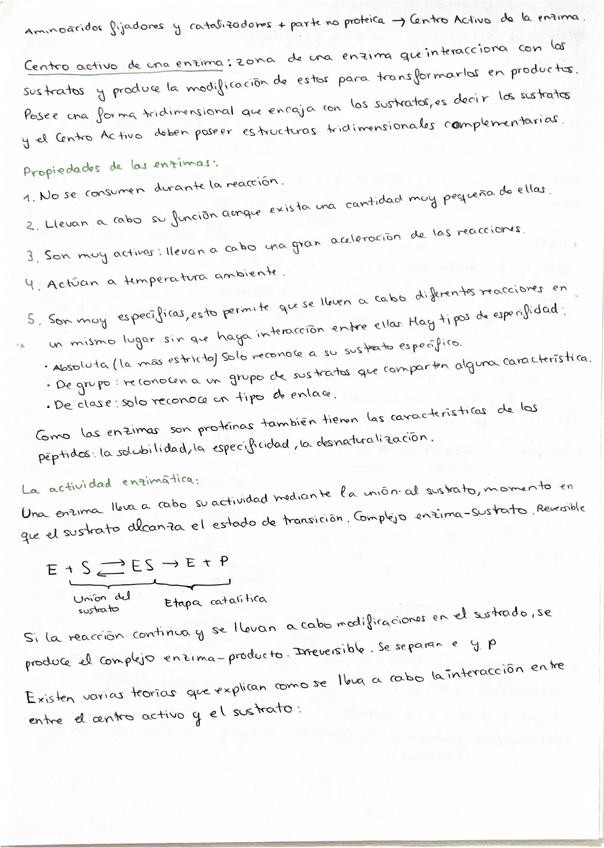 Aminoácidos fijadores y catalizadores + parte no proteica → Centro Activo de la enzima.
Centro activo de una enzima: zona de una enzima que interacciona con los
sustratos y produce la modificación de estos para transformarlos en productos.
Posee una forma tridimensional que encaja con los sustratos, es decir los sustratos
y el Centro Activo deben poseer estructuras tridimensionales complementarias.
Propiedades de las enzimas:
1. No se consumen durante la reacción.
2. Llevan a cabo su función aunque exista una cantidad muy pequeña de ellas.
3. Son muy activas: llevan a cabo una gran aceleración de las reacciones.
4. Actúan a temperatura ambiente.
5. Son muy específicas, esto permite que se lleven a cabo diferentes reacciones en
un mismo lugar sin que haya interacción entre ellas. Hay tipos de espenfidad:
· Absoluta (la más estricto) Solo reconoce a su sustrato específico.
· De grupo: reconocen a un grupo de sustratos que comparten alguna característica.
· De clase: solo reconoce un tipo de enlace.
Como las enzimas son proteínas también tienen las características de los
péptidos: la solubilidad, la especificidad, la desnaturalización.
La actividad enzimática:
Una enzima lleva a cabo su actividad mediante la unión al sustrato, momento en
que el sustrato alcanza el estado de transición. Complejo enzima-sustrato. Reversible
E + S ⇄ ES → E + P
Unión del sustrato
Etapa catalítica
Si la reacción continua y se llevan a cabo modificaciones en el sustrado, se
produce el complejo enzima-producto. Irreversible. Se separan e y p
Existen varias teorías que explican como se lleva a cabo la interacción entre
entre el centro activo y el sustrato: